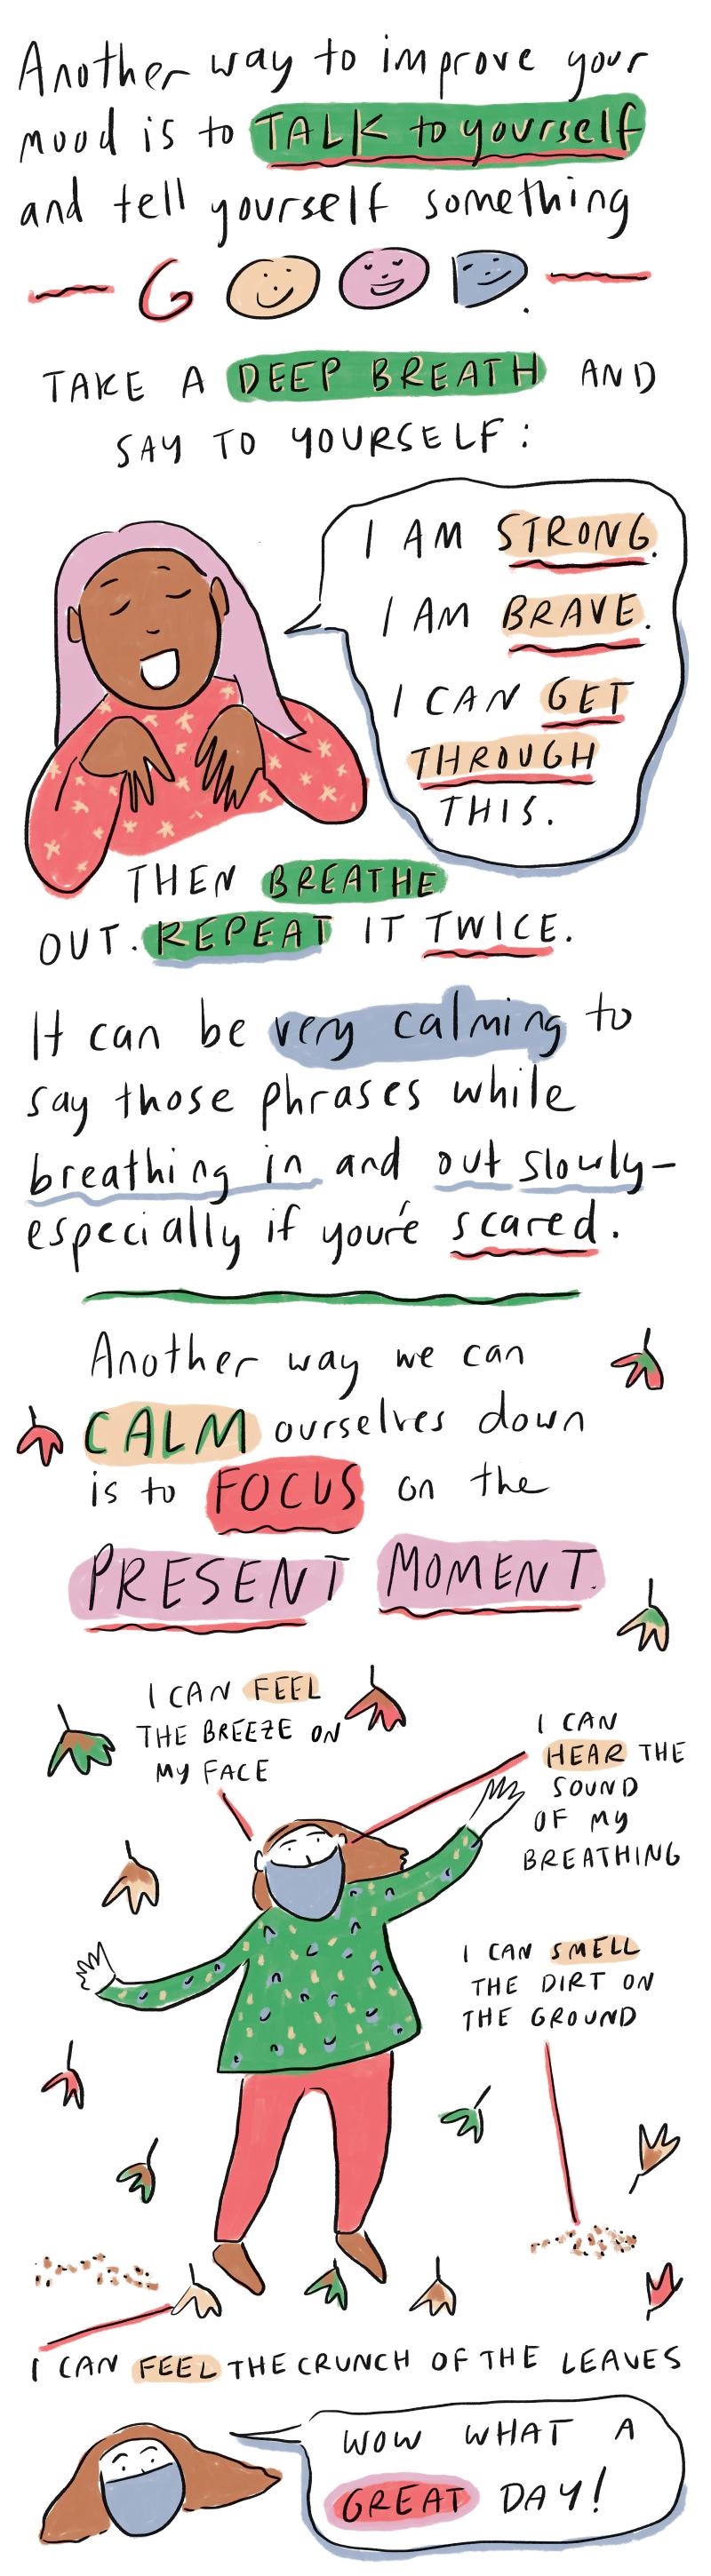 Another way to improve your
mood is to TALK to yourself
and tell yourself something
GOOD.
TAKE A DEEP BREATH AND
SAY TO YOURSELF:
I AM STRONG.
I AM BRAVE.
I CAN GET
THROUGH
THIS.
THEN BREATHE
OUT. REPEAT IT TWICE.
It can be very calming to
say those phrases while
breathing in and out slowly-
especially if you're scared.
Another way we can
CALM ourselves down
is to FOCUS on the
PRESENT MOMENT.
I CAN FEEL
THE BREEZE ON
MY FACE
I CAN
HEAR THE
SOUND
OF MY
BREATHING
I CAN SMELL
THE DIRT ON
THE GROUND
I CAN FEEL THE CRUNCH OF THE LEAVES
WOW WHAT A
GREAT DAY!